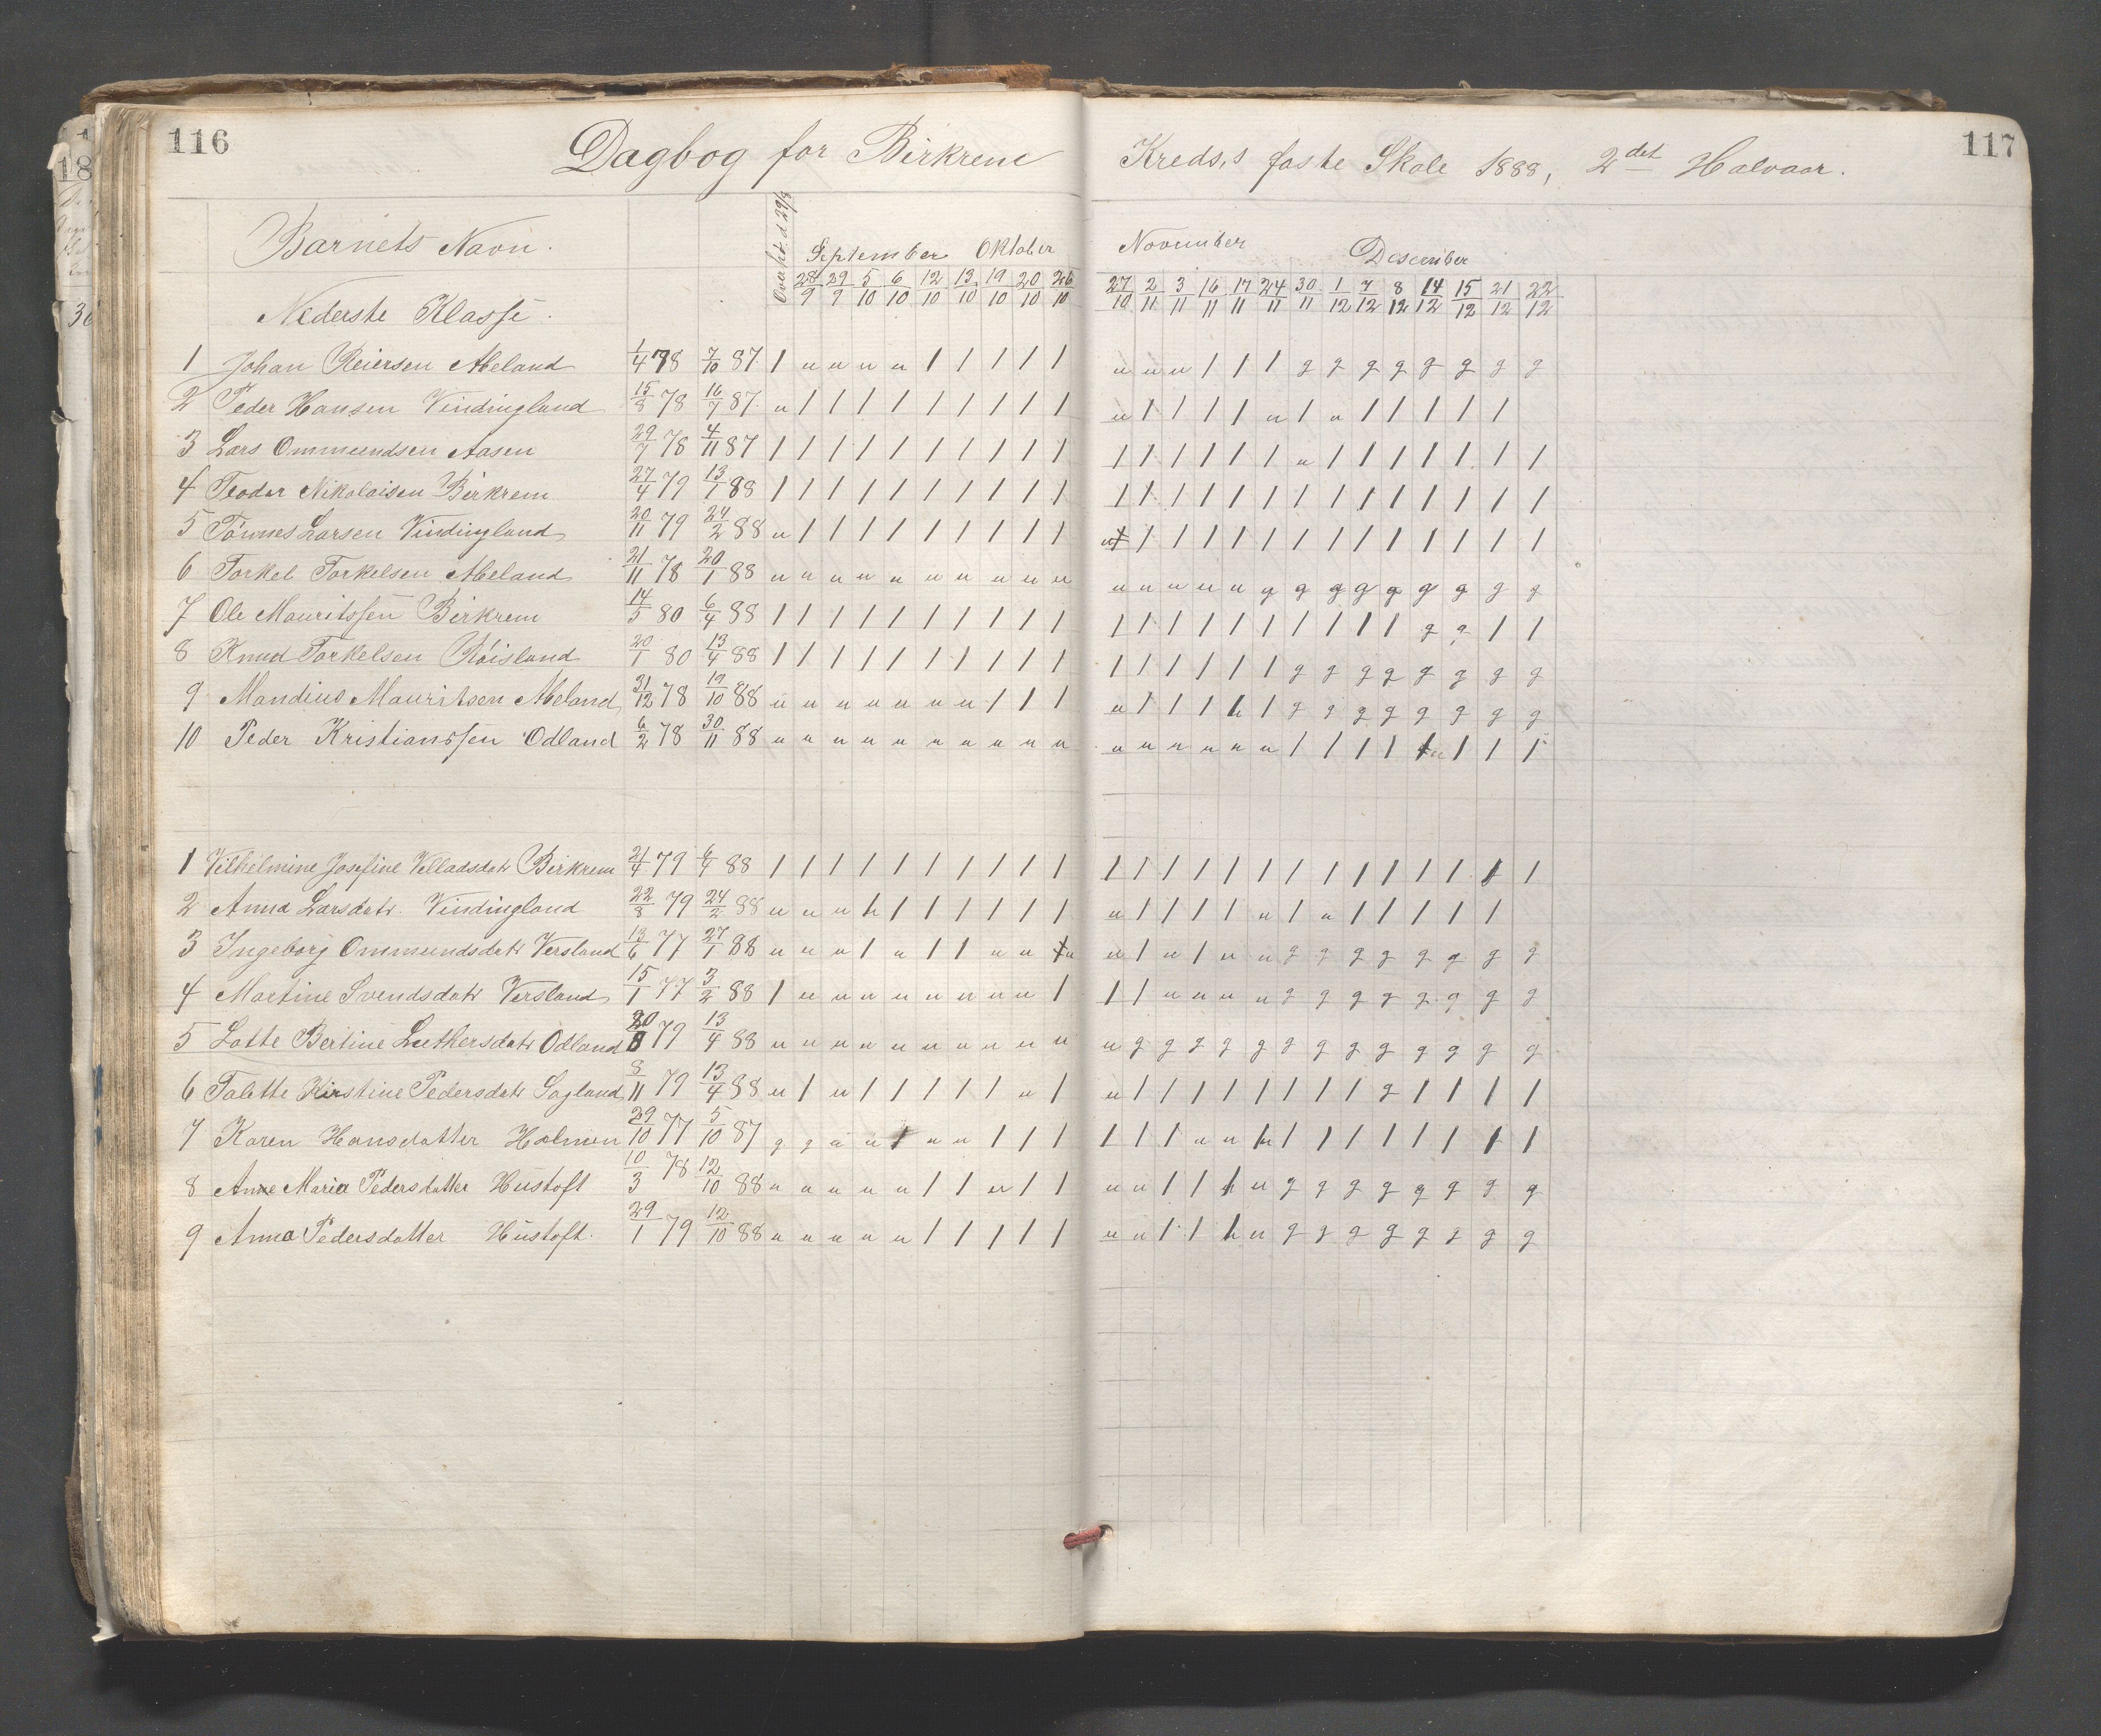 116
117
Dagbog for Birkrem Kreds,s faste Skole 1888, 2det Halvaar.
Barnets Navn.
September Oktober November December
28/9 29/9 5/10 6/10 12/10 13/10 19/10 20/10 26/10 27/10 2/11 3/11 16/11 17/11 24/11 30/11 1/12 7/12 8/12 14/12 15/12 21/12 22/12
Nederste Klasse.
1 Johan Reiersen Meland 1/4 78 7/10 87 1 u u u u 1 1 1 1 1 u u u 1 1 1 g g g g g g g g
2 Peder Hansen Vindingland 15/8 78 16/7 87 u 1 1 1 1 1 1 1 1 1 u 1 1 1 1 u 1 u 1 1 1 1 1
3 Lars Ommundsen Aasen 29/7 78 4/11 87 1 1 1 1 1 1 1 1 1 1 1 1 1 1 1 1 u 1 1 1 1 1 1 1
4 Teodor Nikolaisen Birkrem 27/4 79 13/1 88 1 1 1 1 1 1 1 1 1 1 1 1 1 1 1 1 1 1 1 1 1 1 1 1
5 Tönnes Larsen Vindingland 20/11 79 24/2 88 u 1 1 1 1 1 1 1 1 1 u 1 1 1 1 1 1 1 1 1 1 1 1 1
6 Torkel Torkelsen Meland 21/11 78 20/1 88 u u u u u u u u u u u u u u u g g g g g g g g g
7 Ole Mauritssen Birkrem 14/5 80 6/4 88 1 1 1 1 1 1 1 1 1 1 1 1 1 1 1 1 1 1 1 1 g g 1 1
8 Knud Torkelsen Röisland 20/1 80 13/4 88 1 1 1 1 1 1 1 1 1 1 1 1 1 1 1 1 g g g g g g g g
9 Mandius Mauritsen Meland 31/12 78 19/10 88 u u u u u u u 1 1 1 u 1 1 1 h 1 g g g g g g g g
10 Peder Kristianssen Odland 6/2 78 30/11 88 u u u u u u u u u u u u u u u u 1 1 1 1 u 1 1 1
1 Vilhelmine Josefine Velladsdatr Birkrem 21/4 79 6/4 88 1 1 1 1 1 1 1 1 1 1 1 1 1 1 1 1 1 1 1 1 1 1 1 1
2 Anna Larsdatr. Vindingland 22/8 79 24/2 88 u u u h 1 1 1 1 1 1 u 1 1 1 1 u 1 u 1 1 1 1 1
3 Ingeborg Ommundsdatr Versland 13/6 77 27/1 88 u u u 1 u 1 1 u u u u 1 u 1 u u g g g g g g g g
4 Martine Svendsdatr Versland 15/1 77 3/2 88 1 u u u u u u u u 1 1 1 u u u u g g g g g g g g
5 Lotte Bertine Luthersdatr Odland 79 13/4 88 u u u u u u u u u u u g g g g g g g g g g g g g
6 Talette Kirstine Pedersdatr Sagland 8/11 79 13/4 88 u 1 u 1 1 1 1 1 u 1 u 1 1 1 1 1 1 1 1 g 1 1 1 1
7 Karen Hansdatter Holmen 29/10 77 5/10 87 g g u u 1 u u 1 1 1 1 1 1 u u h 1 1 1 1 1 1 1 1
8 Anne Maria Pedersdatter Hustoft 10/3 78 12/10 88 u u u u u 1 1 u 1 1 u u 1 1 h u g g g g g g g g
9 Anna Pedersdatter Hustoft. 29/1 79 12/10 88 u u u u u 1 1 1 1 1 u u 1 1 h u g g g g g g g g